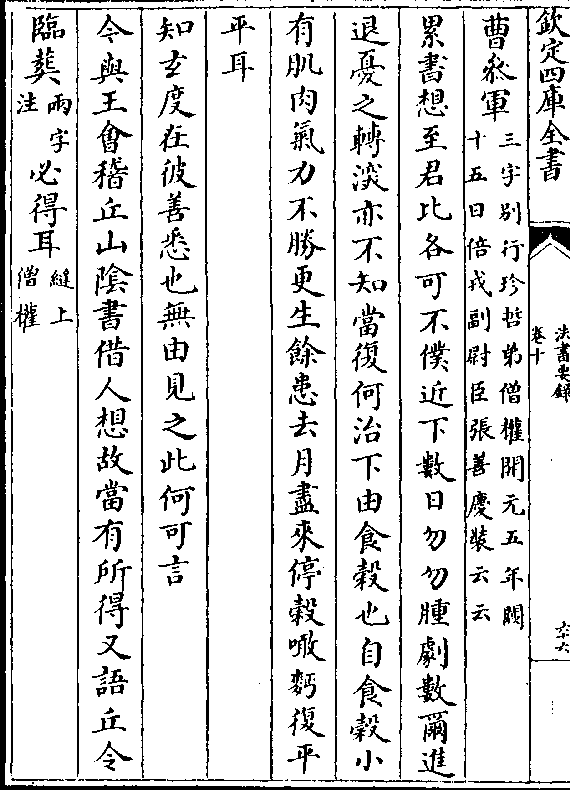 欽定四庫全書
法書要錄
卷十
六十六
曹參軍
三字別行珍哲弟僧權開元五年閏
十五日倍戎副尉臣張善慶裝云云
累書想至君比各可不僕近下數日勿勿腫劇數爾進
退憂之轉深亦不知當復何治下由食穀也自食穀小
有肌肉氣力不勝更生餘患去月盡來停穀噉麪復平
平耳
知玄度在彼善悉也無由見之此何可言
令與王會稽丘山陰書借人想故當有所得又語丘令
臨葬
兩字
注
必得耳
縫上
僧權